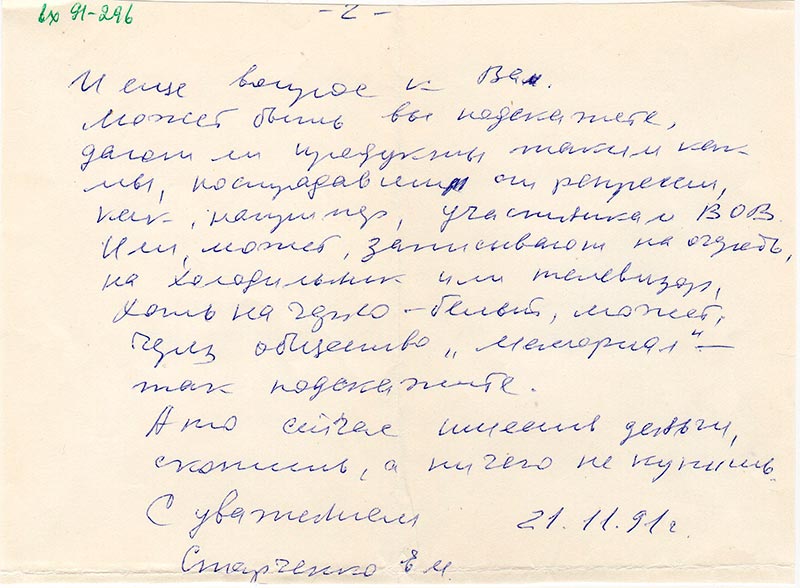 вх 91-296
-2-
И еще вопрос к Вам.
Может быть вы подскажете,
дают ли продукты таким как
мы, пострадавшим от репрессии,
как, например, участникам ВОВ.
Или, может, записывают на очередь,
на холодильник или телевизор,
хоть на черно-белый, может,
через общество „Мемориал" —
так подскажите.
А то сейчас имеешь деньги,
скопишь, а ничего не купишь.
С уважением 21.11.91г.
Старченко Е М